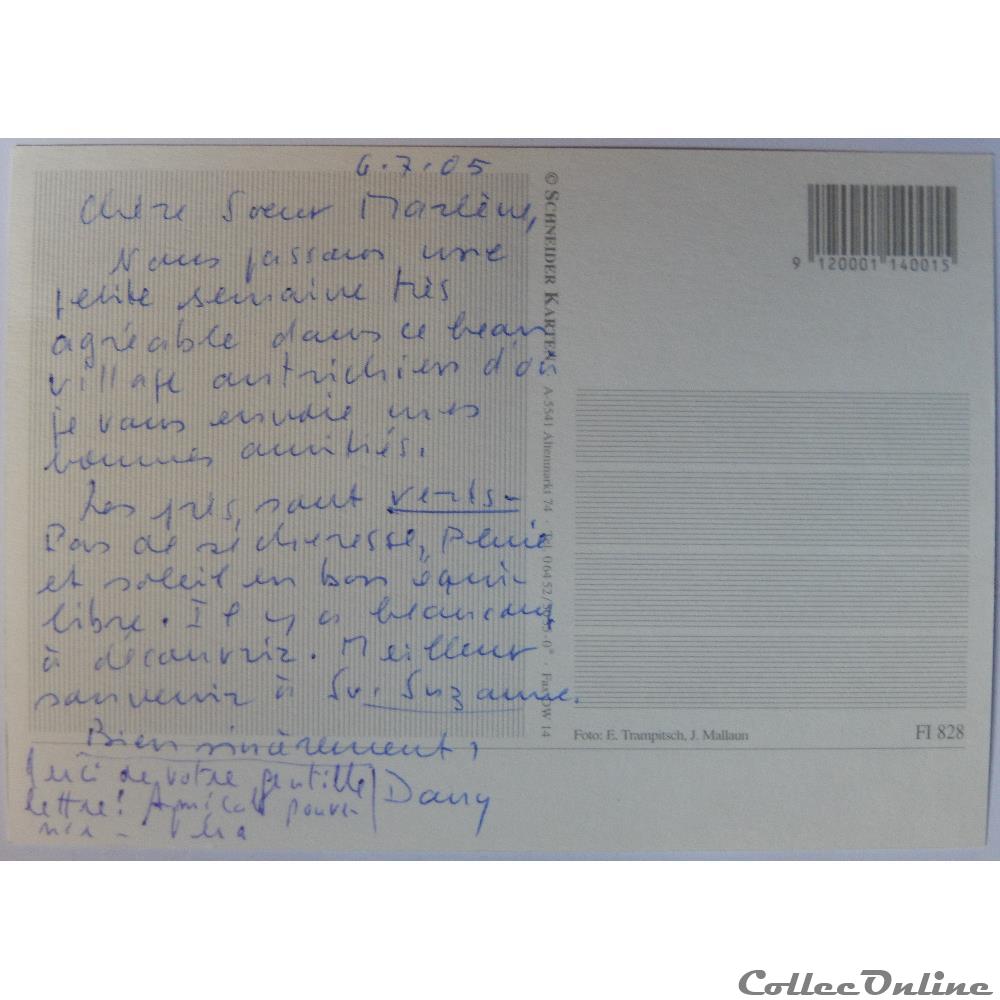 6.7.05
Chère Soeur Marlène,
Nous passons une
petite semaine très
agréable dans ce beau
village autrichien d'où
je vous envoie mes
bonnes amitiés.
Les prés sont verts-
Pas de sécheresse, pluie
et soleil en bon équi-
libre. Il y a beaucoup
à découvrir. Meilleur
souvenir à Sr. Suzanne.
Bien sincèrement,
Dany
Merci de votre gentille
lettre! Amical souve-
nir -
© SCHNEIDER KARTEN, A-5541 Altenmarkt 74 · Tel. 06452/ -0* · Fax DW 14
9 120001 140015
Foto: E. Trampitsch, J. Mallaun
FI 828
CollecOnline